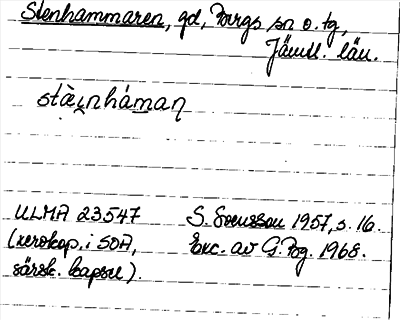 Stenhammaren, gd, Borgs sn o. tg,
Jämtl. län.
stàɪnháman
ULMA 23547 S. Svensson 1957, s. 16.
(xerokop. i SOA, Exc. av G. Bg. 1968.
särsk. kapsel).